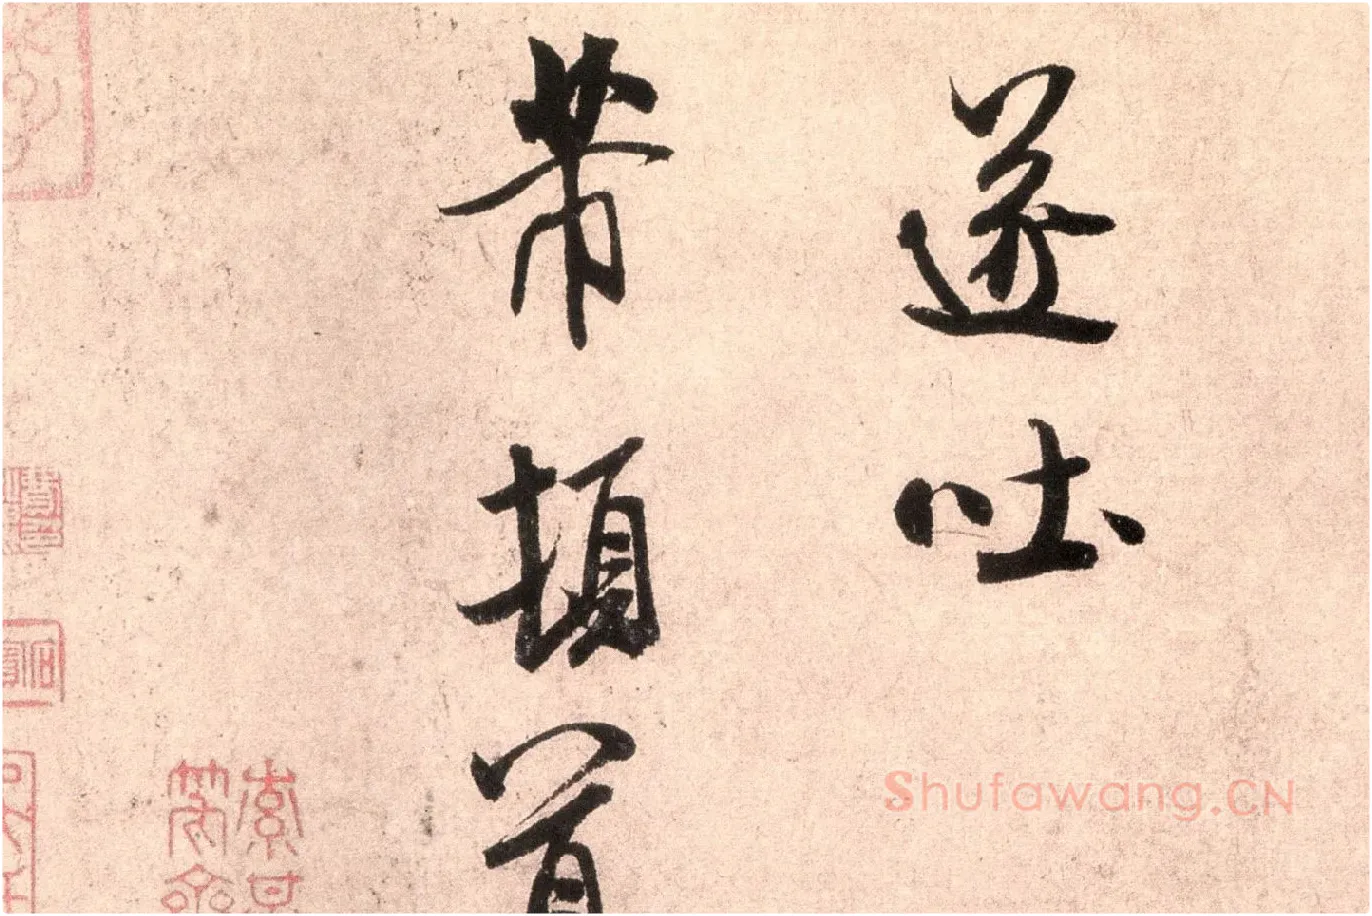 遂吐
芾頓首
Shufawang.CN